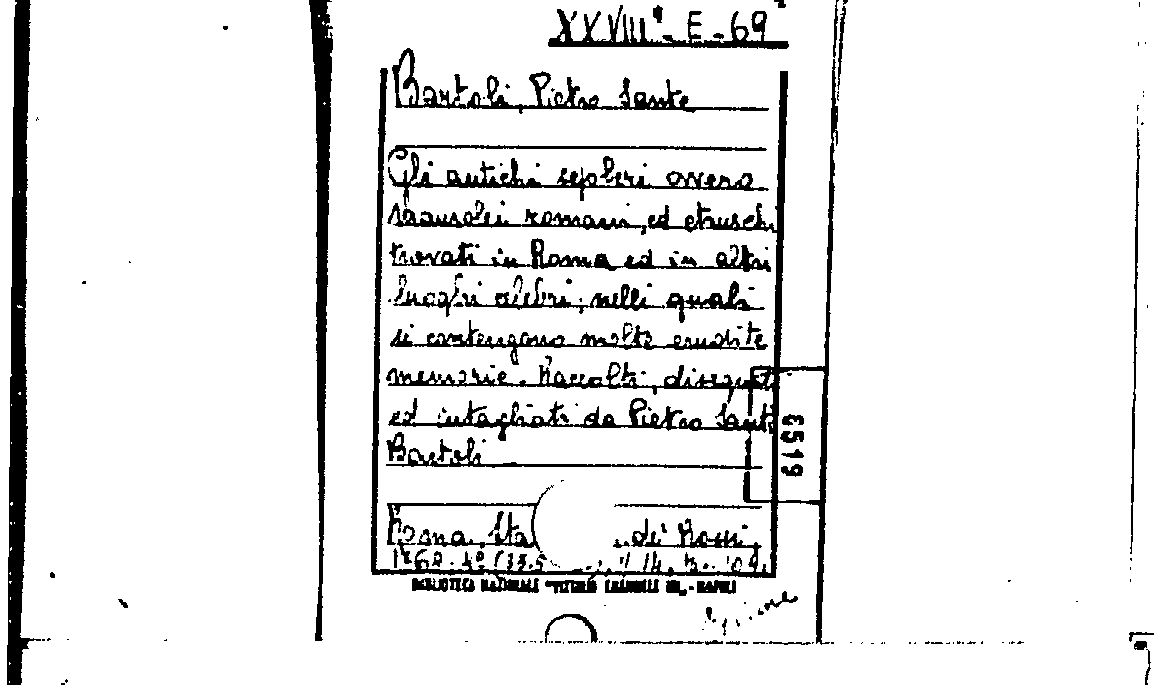 XXVIIIª - E - 69
Bartoli, Pietro Sante
Gli antichi sepolcri ovvero
mausolei romani, ed etruschi
trovati in Roma ed in altri
luoghi celebri, nelli quali
si contengono molte erudite
memorie. Raccolti, disegnati
ed intagliati da Pietro Santi
Bartoli
Roma, Sta de' Rossi,
1768. 4º (33,5
BIBLIOTECA NAZIONALE "VITTORIO EMANUELE III„ - NAPOLI
E519